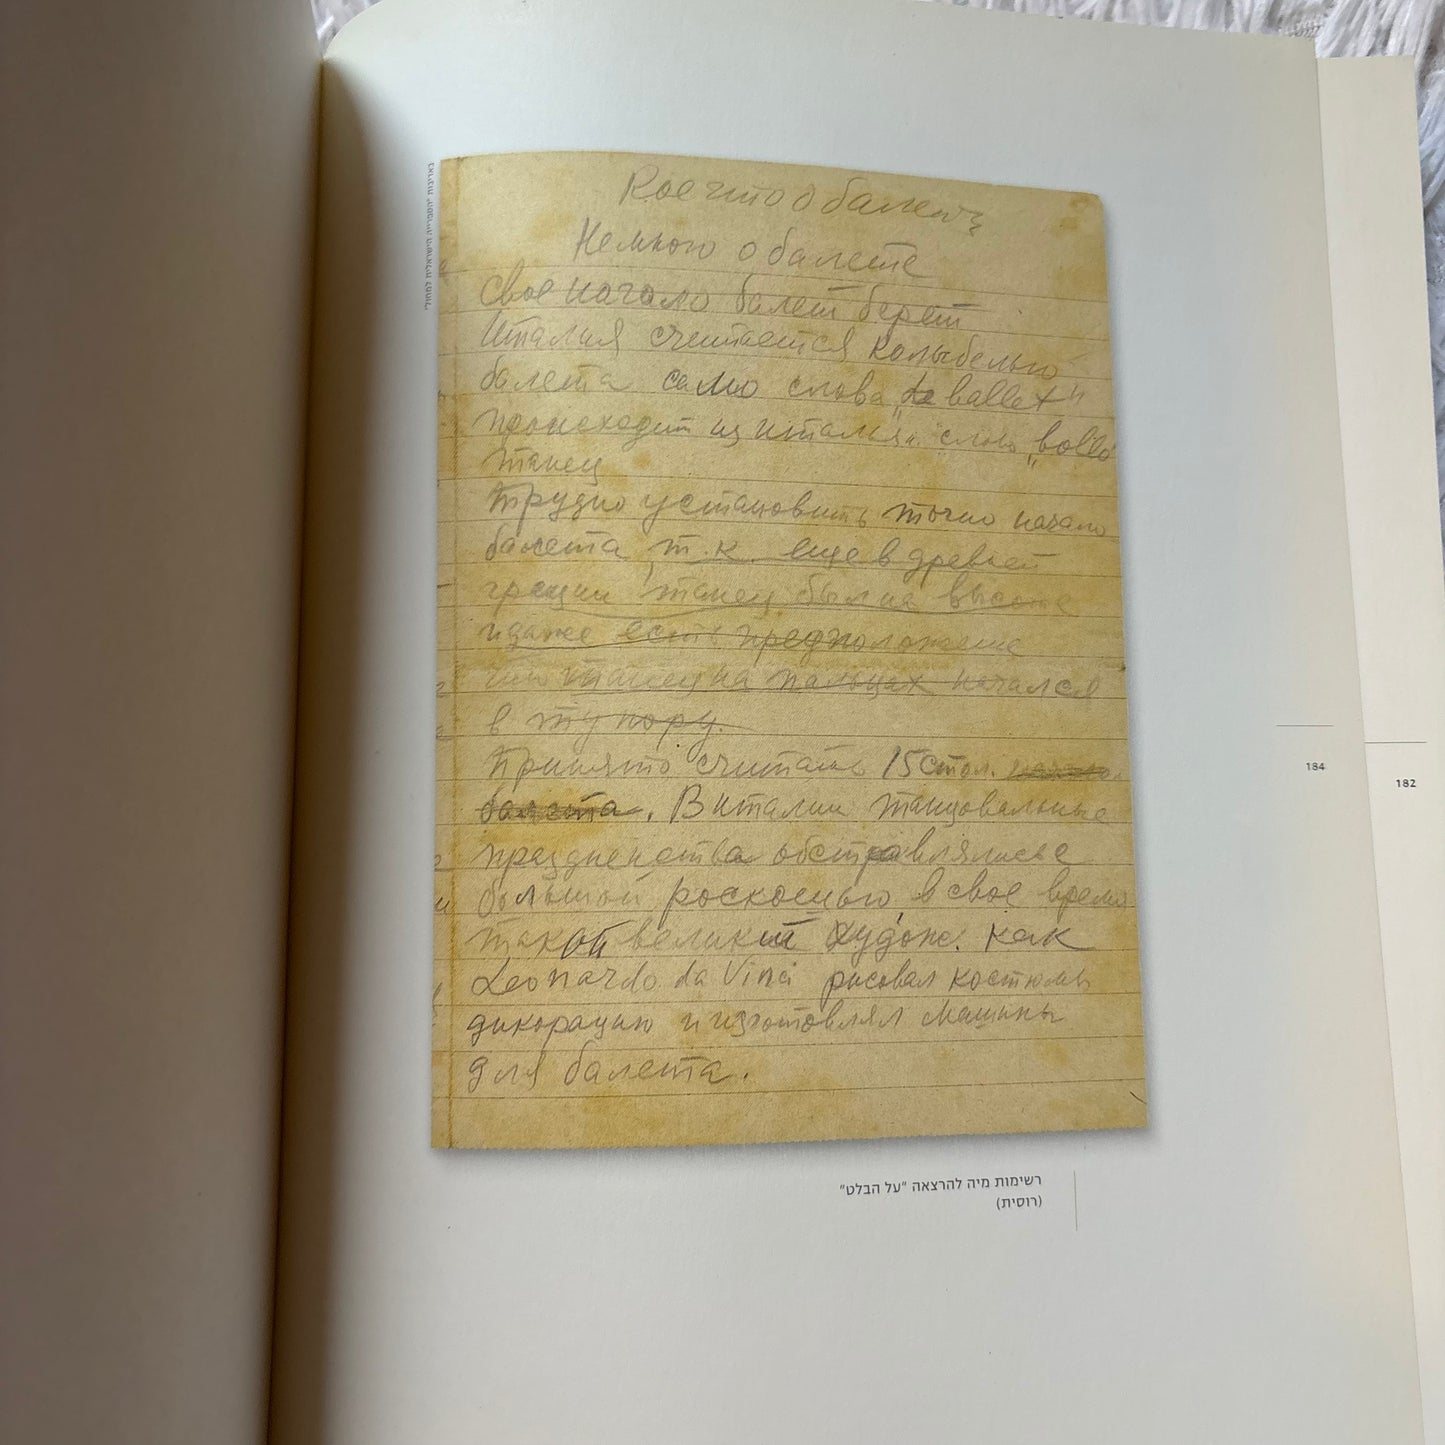 Кое что о балету
Немного о балете
свое начало балет берет
Италия считается колыбелью
балета само слова „de ballet"
происходит из италия. слово „bollo
танец
Трудно установить точно начало
балета, т.к. еще в древней
греции танец был на высоте
и даже есть предположение
что танец на пальцах начался
в ту пору.
Принято считать 15 стол. начало
балета. В италии танцовальные
празднества обставлялись с
большой роскошью в свое время
такой великий худож. как
Leonardo da Vinci рисовал костюмы
дикорацию и изготовлял машины
для балета.
רשימות מיה להרצאה "על הבלט"
(רוסית)
184
182